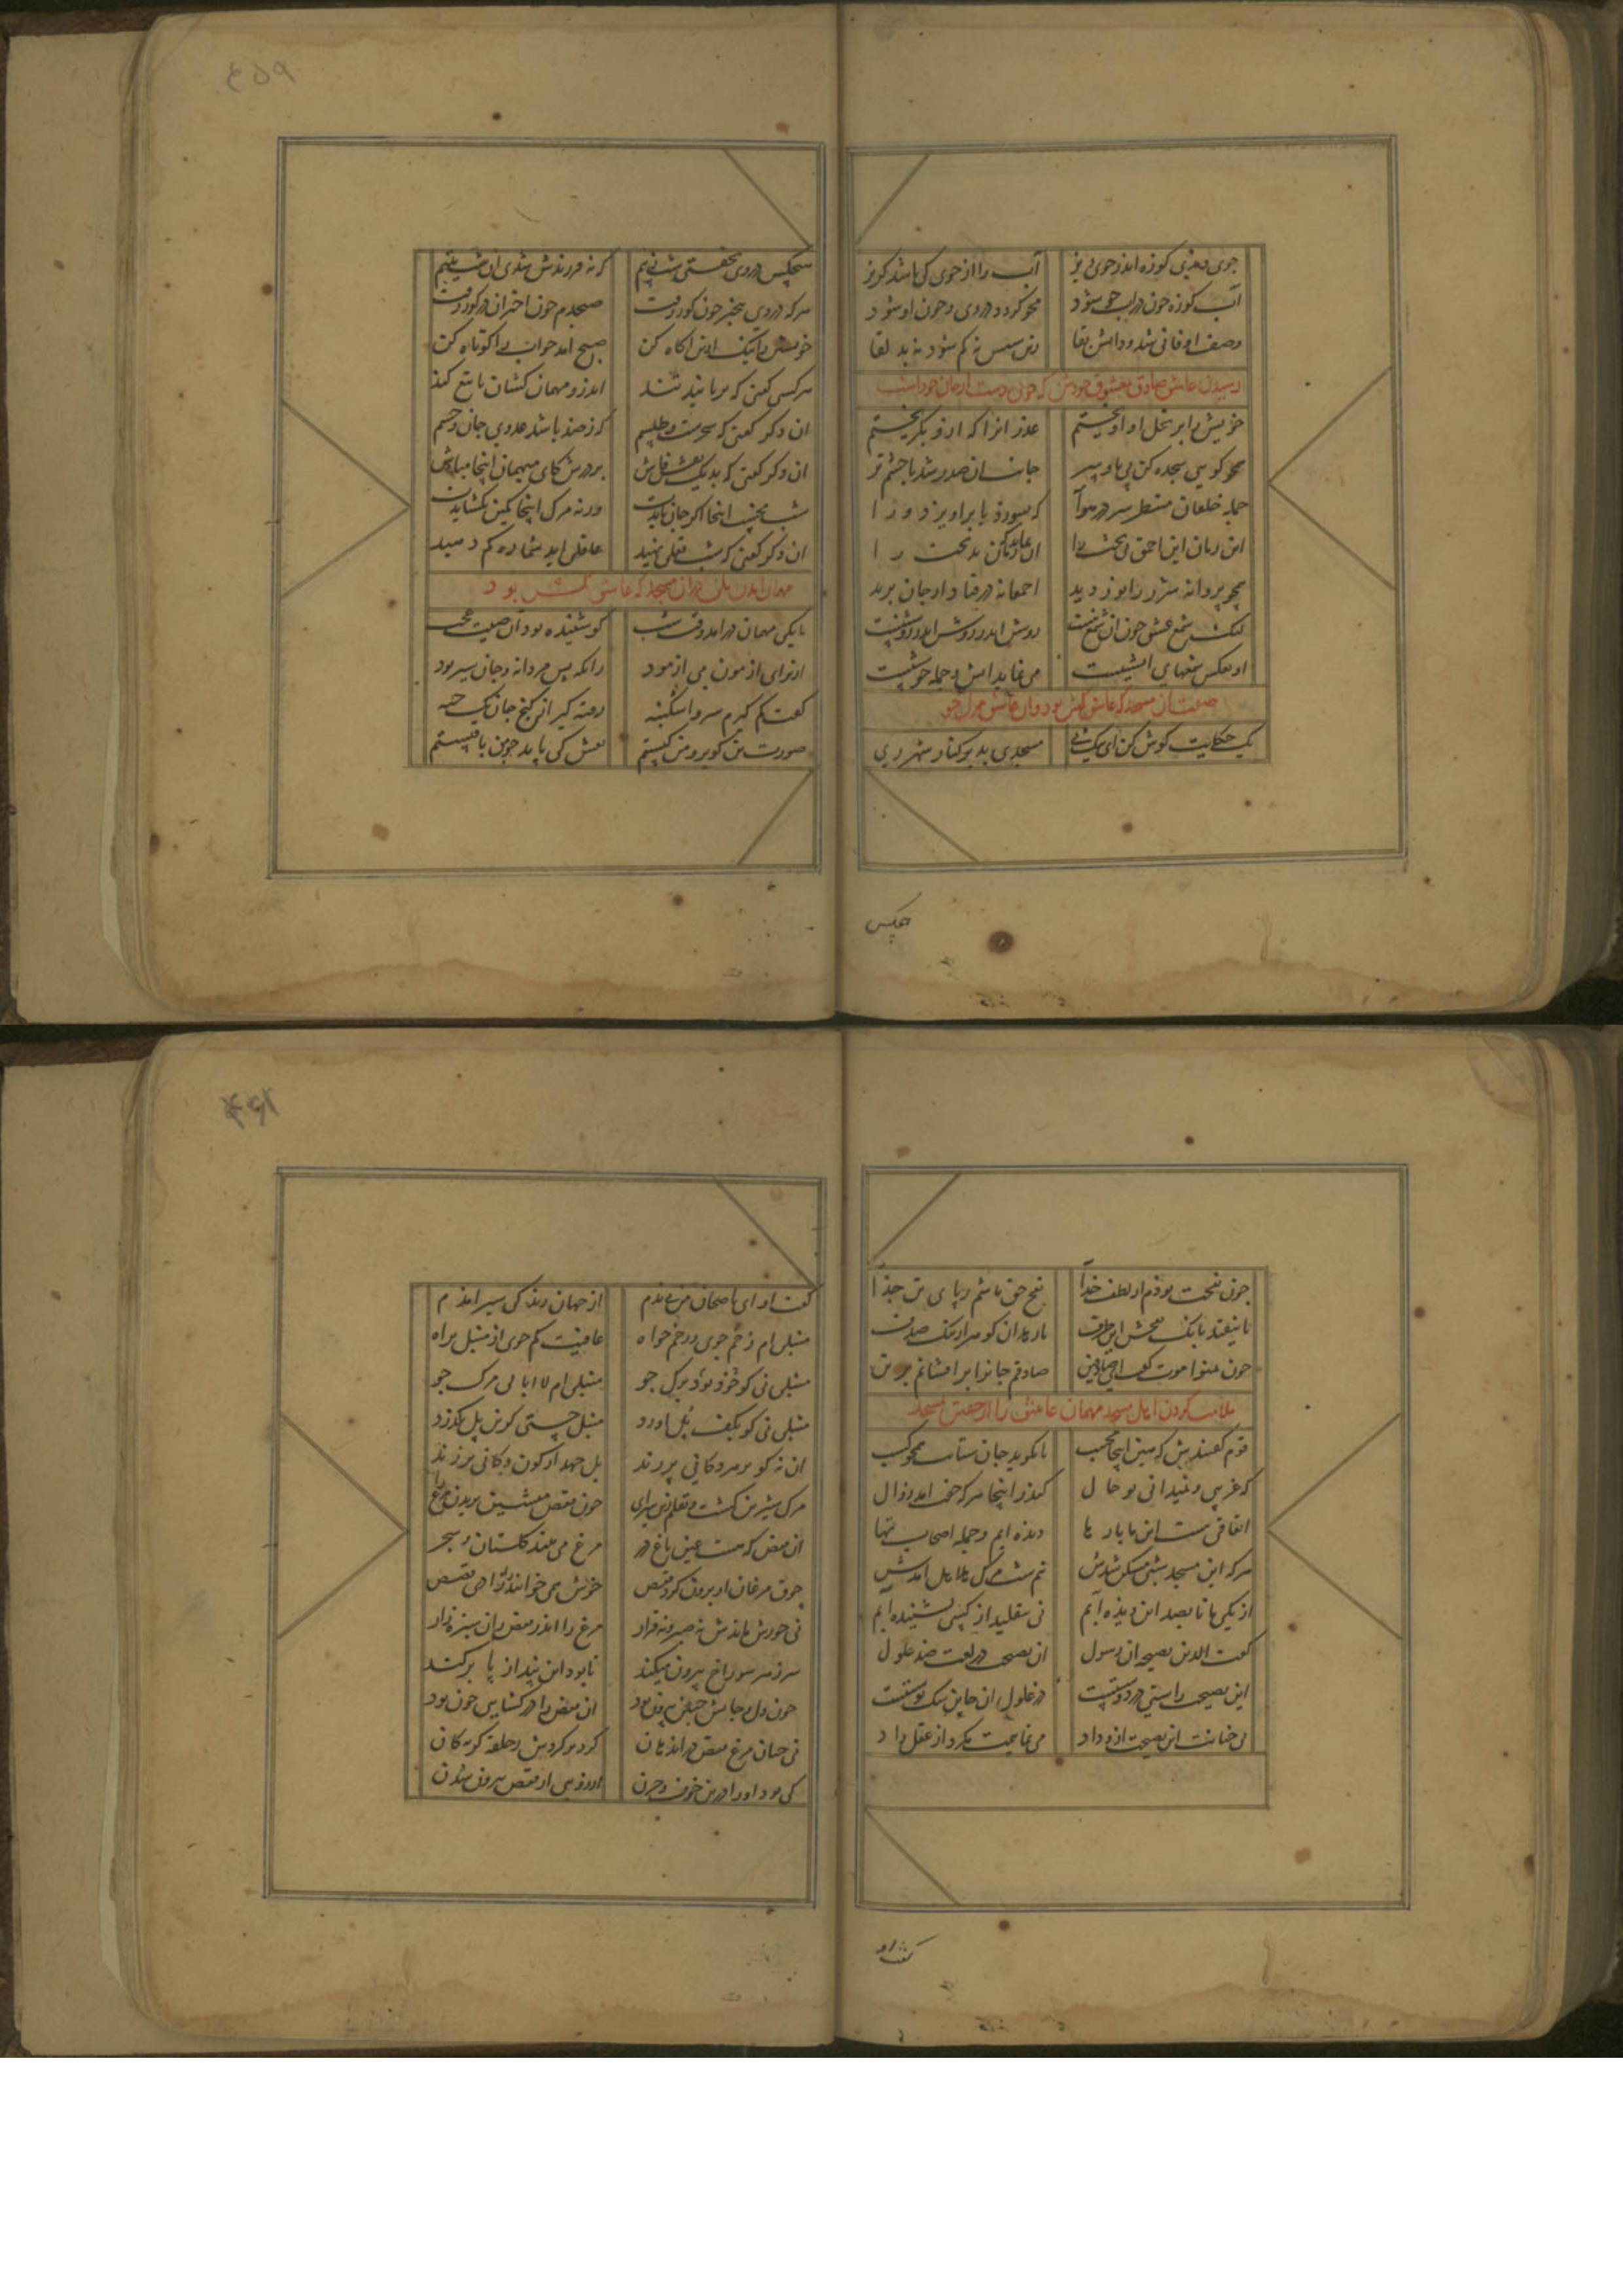 جوی دیدی کوزه اندر جوی ریز آب را از جوی کی باشد گریز
آب کوزه چون در آب جو شود محو گردد در وی و چون او شود
وصف او فانی شد و ذاتش بقا زین سپس نه کم شود نه بد لقا
رسیدن عاشق صادق بمعشوق خویش که چون دست از جان خود بشست
خویش را بر نخل او آویختم عذر آنرا که ازو بگریختم
همچو کویی سجده کن بر رو و سر جانب آن صدر شد با چشم تر
جمله خلقان منتظر سر در هوا که بسوزد یا برآویزد ورا
این زمان این احمق یک لخت را آن نماید که زمان بدبخت را
همچو پروانه شرر را نور دید احمقانه در فتاد از جان برید
لیک شمع عشق چون آن شمع نیست روشن اندر روشن اندر روشنیست
او بعکس شمعهای آتشیست می نماید آتش و جمله خوشیست
صفت آن مسجد که عاشق کش بود و آن عاشق مرگ جو
یک حکایت گوش کن ای نیک پی مسجدی بد بر کنار شهر ری
هیچکس
۴۵۹
هیچکس در وی نخفتی شب ز بیم که نه فرزندش شدی آن شب یتیم
هر که در وی بیخبر چون کور رفت صبحدم چون اختران در گور رفت
خویشتن را نیک ازین آگاه کن صبح آمد خواب را کوتاه کن
هر کسی گفتی که پریانند تند اندرو مهمان کشان با تیغ کند
آن دگر گفتی که سحرست و طلسم کز رصد باشد عدوی جان و جسم
آن دگر گفتی که بر نه نقش فاش بر درش کای میهمان اینجا مباش
شب مخسپ اینجا اگر جان بایدت ورنه مرگ اینجا کمین بگشایدت
آن دگر گفتی که شب قفلی نهید غافلی آید شما ره کم دهید
مهمان آمدن در آن مسجد که عاشق کش بود
تا یکی مهمان در آمد وقت شب کو شنیده بود آن صیت عجب
از برای آزمون می آزمود زانکه بس مردانه و جان سیر بود
گفت کم گیرم سر و اشکنبه رفته گیر از گنج جان یک حبه
صورت تن گو برو من کیستم نقش کی ناید چو من باقیستم
چون نفخت بودم از لطف خدا نفخ حق باشم ز نای تن جدا
تا نیفتد بانگ نفخش این طرف تا رهد آن گوهر از تنگ صدف
چون تمنوا موت گفت ای صادقین صادقم جان را بر افشانم برین
ملامت کردن اهل مسجد مهمان عاشق را از خفتن مسجد
قوم گفتندش که هین اینجا مخسپ تا نکوبد جان ستانت همچو کسب
که غریبی و نمیدانی ز حال کاندر اینجا هر که خفت آمد زوال
اتفاقی نیست این ما بارها دیده ایم و جمله اصحاب نها
هر که این مسجد شبی مسکن شدش نیم شب مرگ هلاهل آمدش
از یکی ما تا بصد این دیده ایم نی بتقلید از کسی بشنیده ایم
گفت الدین نصیحه آن رسول آن نصیحت در لغت ضد غلول
این نصیحت راستی در دوستیست در غلولی آن خاین سگ پوستیست
بی خیانت این نصیحت از وداد می نماییمت مگرد از عقل و داد
گفت او
۴۶۱
گفت او ای ناصحان من بی ندم از جهان زندگی سیر آمدم
منبلی ام زخم جوی و زخم خواه عافیت کم جوی از منبل براه
منبلی نی کو خود بود برگ جو منبلی ام لاابالی مرگ جو
منبلی نی کو بکف پل آورد منبل چستی کزین پل بگذرد
آن نه کو بر هر دکانی بر زند بل جهد از کون و کانی بر زند
مرگ شیرین گشت و نقلم زین سرای چون قفص هشتن پریدن مرغ را
آن قفص که هست عین باغ در مرغ می بیند گلستان و شجر
جوق مرغان از برون گرد قفص خوش همی خوانند زآزادی قصص
نی خورش ماندش نه صبر و نه قرار مرغ را اندر قفص زان سبزه زار
سر ز هر سوراخ بیرون میکند تا بود این بند از پا برکند
چون دل و جانش چنین بیرون بود آن قفص را در گشایی چون بود
نی چنان مرغ قفص در اندهان گرد بر گردش بحلقه گربکان
کی بود او را درین خوف و حزن آرزوی از قفص بیرون شدن